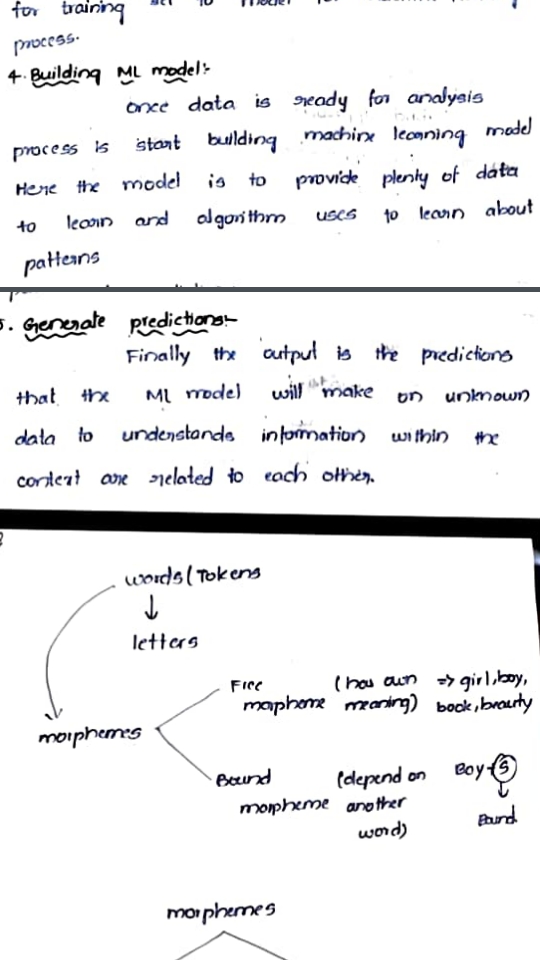 for training
process.
4. Building ML model:-
once data is ready for analysis
process is start building machine learning model
Here the model is to provide plenty of data
to learn and algorithm uses to learn about
patterns
5. Generate predictions:-
Finally the output is the predictions
that the ML model will make on unknown
data to understands information within the
context are related to each other.
words (Tokens
↓
letters
Free (has own => girl, boy,
morpheme meaning) book, beauty
morphemes
Bound (depend on Boy+s
morpheme another ↓
word) Bound
morphemes